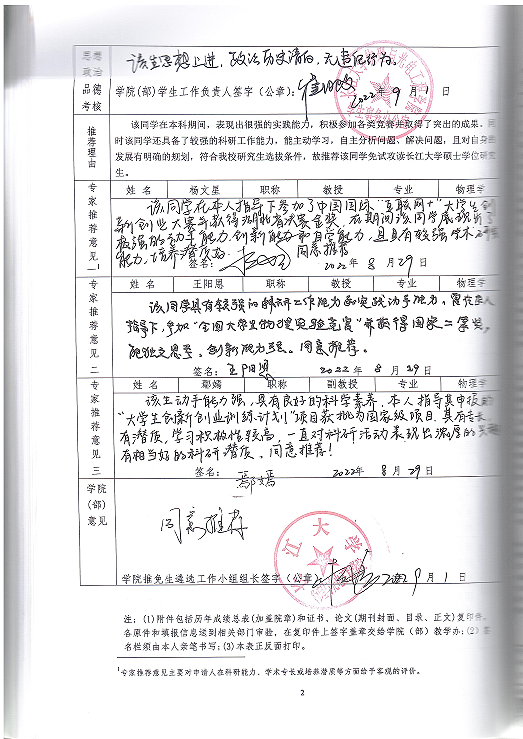 思想政治品德考核
该生思想上进,政治历史清白,无违纪行为。
学院(部)学生工作负责人签字(公章):
2022年9月1日
推荐理由
该同学在本科期间,表现出很强的实践能力,积极参加各类竞赛并取得了突出的成果。同
时该同学还具备了较强的科研工作能力,能主动学习,自主分析问题、解决问题,且对自身
发展有明确的规划,符合我校研究生选拔条件,故推荐该同学免试攻读长江大学硕士学位研究
生。
专家推荐意见一¹
姓 名 杨文星 职称 教授 专业 物理学
该同学在本人指导下参加了中国国际"互联网+"大学生创
新创业大赛并获得湖北省决赛金奖,在期间该同学展现出了
极强的动手能力、创新能力和自学能力,且具有较强学术研究
能力,培养潜质好。 同意推荐
签名:
2022年8月29日
专家推荐意见二
姓 名 王阳恩 职称 教授 专业 物理学
该同学具有较强的科研工作能力和实践动手能力,曾在本人
指导下,参加"全国大学生物理实验竞赛"并获得国家二等奖,
能独立思考、创新能力强。同意推荐。
签名:王阳恩 2022年8月29日
专家推荐意见三
姓 名 鄢嫣 职称 副教授 专业 物理学
该生动手能力强,具有良好的科学素养,本人指导其申报的
"大学生创新创业训练计划"项目获批为国家级项目,具有专长
有潜质,学习积极性较高,一直对科研活动表现出浓厚的兴趣
有相当好的科研潜质,同意推荐!
签名:鄢嫣 2022年8月29日
学院(部)意见
同意推荐
江大学
学院推免生遴选工作小组组长签字(公章):
2022年9月1日
注:(1)附件包括历年成绩总表(加盖院章)和证书、论文(期刊封面、目录、正文)复印件。
各原件和填报信息送到相关部门审验,在复印件上签字盖章交给学院(部)教学办;(2)签
名栏须由本人亲笔书写;(3)本表正反面打印。
¹专家推荐意见主要对申请人在科研能力、学术专长或培养潜质等方面给予客观的评价。
2